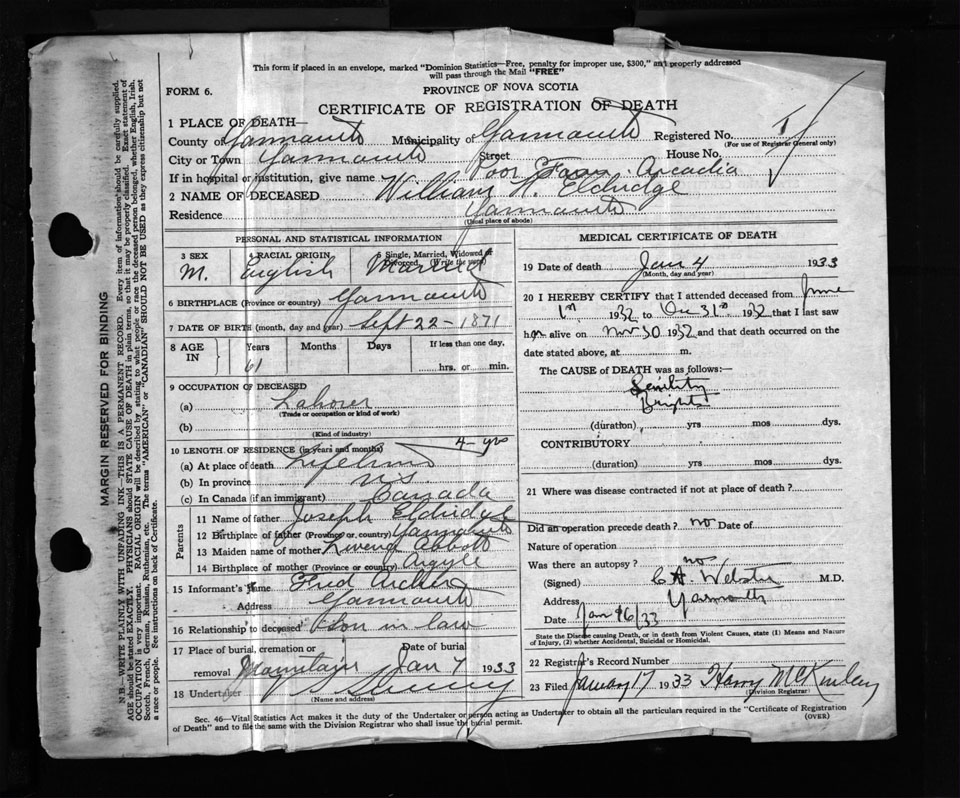 This form if placed in an envelope, marked "Dominion Statistics—Free, penalty for improper use, $300," and properly addressed
will pass through the Mail "FREE"
FORM 6.
PROVINCE OF NOVA SCOTIA
CERTIFICATE OF REGISTRATION OF DEATH
1 PLACE OF DEATH—
County of Yarmouth Municipality of Yarmouth Registered No.
(For use of Registrar General only)
City or Town Yarmouth Street House No.
If in hospital or institution, give name Poor Farm Arcadia
2 NAME OF DECEASED William H. Eldridge
Residence Yarmouth
(Usual place of abode)
PERSONAL AND STATISTICAL INFORMATION
3 SEX 4 RACIAL ORIGIN 5 Single, Married, Widowed or Divorced, (Write the word)
M. English Married
6 BIRTHPLACE (Province or country) Yarmouth
7 DATE OF BIRTH (month, day and year) Sept 22 - 1871
8 AGE IN Years Months Days If less than one day,
61 hrs. or min.
9 OCCUPATION OF DECEASED
(a) Laborer
(Trade or occupation or kind of work)
(b)
(Kind of industry)
10 LENGTH OF RESIDENCE (in years and months) 4 - yrs
(a) At place of death Lifetime
(b) In province N.S.
(c) In Canada (if an immigrant) Canada
Parents
11 Name of father Joseph Eldridge
12 Birthplace of father (Province or country) Yarmouth
13 Maiden name of mother Abbott
14 Birthplace of mother (Province or country) Argyle
15 Informant's name Fred Archer
Address Yarmouth
16 Relationship to deceased Son in law
17 Place of burial, cremation or Date of burial
removal Mountain Jan 7 1933
18 Undertaker
(Name and address)
MEDICAL CERTIFICATE OF DEATH
19 Date of death Jan 4 1933
(Month, day and year)
20 I HEREBY CERTIFY that I attended deceased from June
1st 1932 to Dec 31st 1932 that I last saw
h alive on Nov 30 1932 and that death occurred on the
date stated above, at m.
The CAUSE of DEATH was as follows:—
Senility
Brights
(duration) yrs mos dys.
CONTRIBUTORY
(duration) yrs mos dys.
21 Where was disease contracted if not at place of death?
Did an operation precede death? no Date of
Nature of operation
Was there an autopsy? no
(Signed) C.A. Webster M.D.
Address Yarmouth
Date Jan /33
State the Disease causing Death, or in death from Violent Causes, state (1) Means and Nature
of Injury, (2) whether Accidental, Suicidal or Homicidal.
22 Registrar's Record Number
23 Filed January 17 1933 Harry McKinlay
(Division Registrar)
Sec. 46—Vital Statistics Act makes it the duty of the Undertaker or person acting as Undertaker to obtain all the particulars required in the "Certificate of Registration
of Death" and to file the same with the Division Registrar who shall issue the burial permit. (OVER)
MARGIN RESERVED FOR BINDING
N.B.—WRITE PLAINLY WITH UNFADING INK—THIS IS A PERMANENT RECORD. Every item of information should be carefully supplied.
AGE should be stated EXACTLY. PHYSICIANS should STATE CAUSE OF DEATH in plain terms, so that it may be properly classified. Exact statement of
OCCUPATION is very important. RACIAL ORIGIN will be described by stating to what people or race the deceased person belonged, whether English, Irish,
Scotch, French, German, Russian, Ruthenian, etc. The terms "AMERICAN" or "CANADIAN" SHOULD NOT BE USED as they express citizenship but not
a race or people. See instructions on back of Certificate.